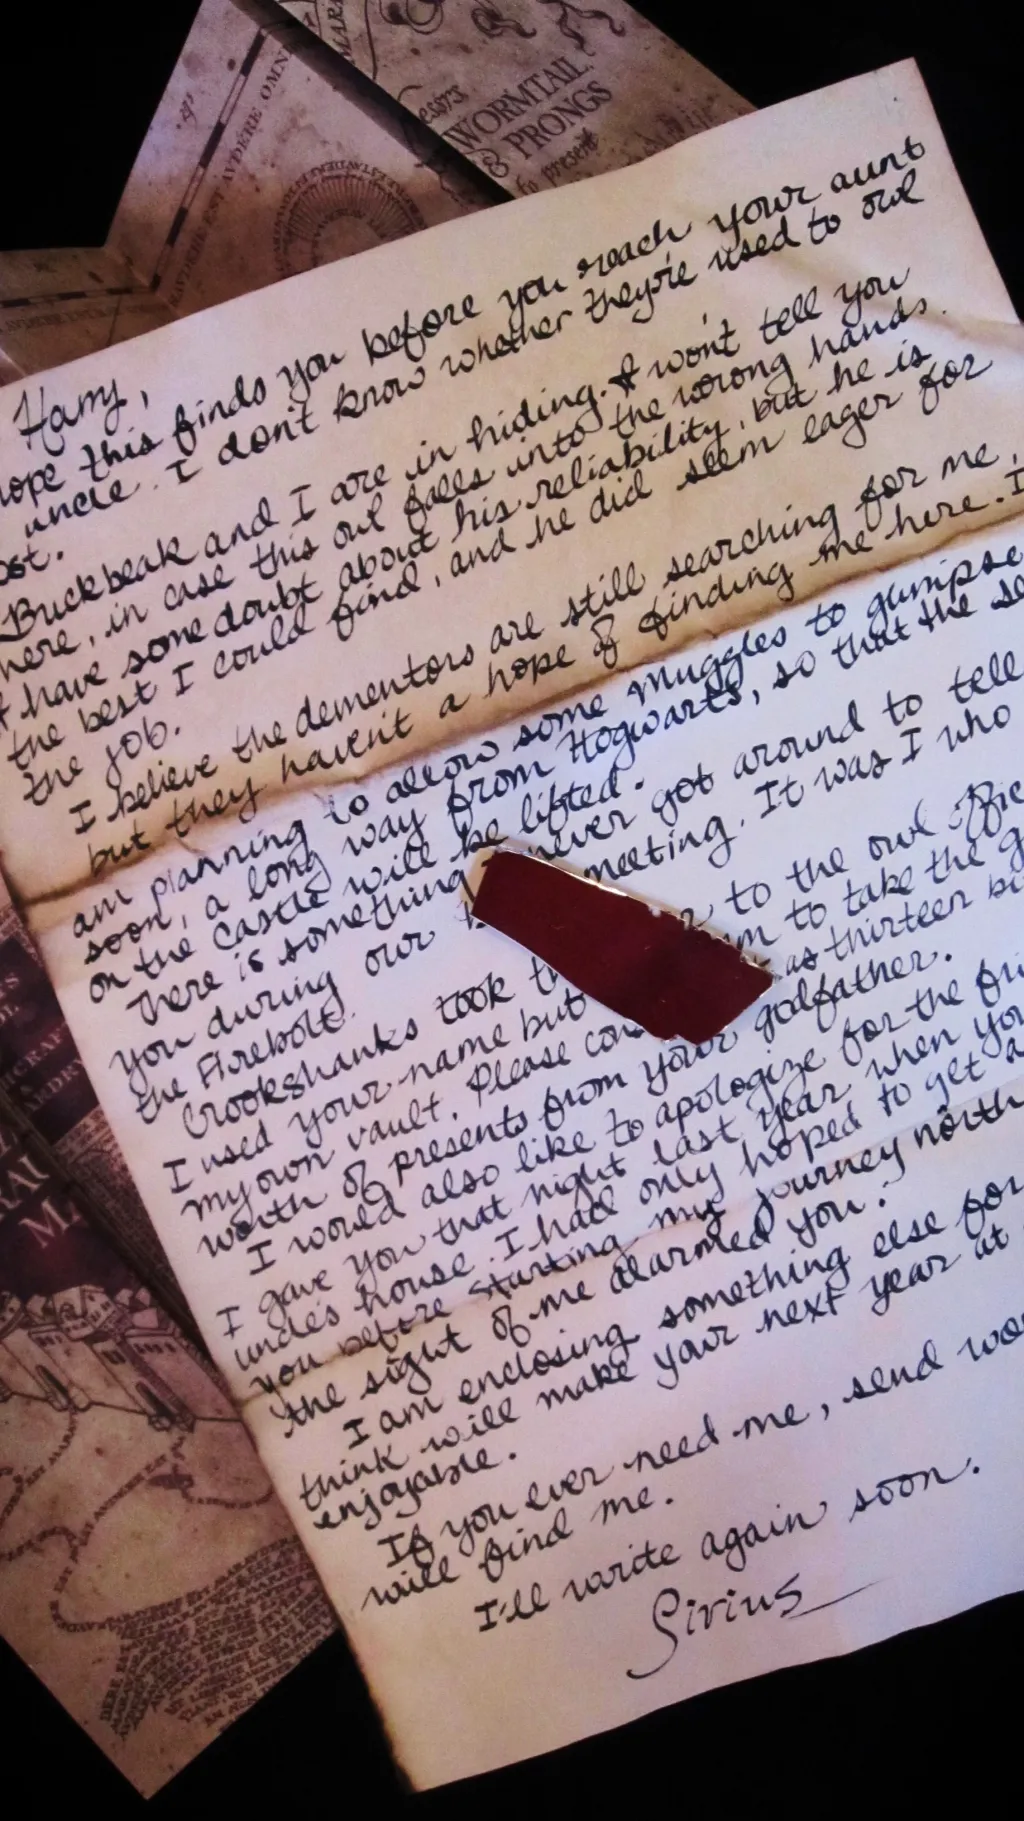 WORMTAIL
& PRONGS
to present
Harry,
hope this finds you before you reach your aunt
uncle. I don't know whether they're used to owl
ost.
Buckbeak and I are in hiding. I won't tell you
here, in case this owl falls into the wrong hands.
I have some doubt about his reliability, but he is
the best I could find, and he did seem eager for
the job.
I believe the dementors are still searching for me,
but they haven't a hope of finding me here. I
am planning to allow some muggles to glimpse
soon, a long way from Hogwarts, so that the se
on the castle will be lifted.
There is something never got around to tell
you during our meeting. It was I who
the Firebolt.
Crookshanks took to the owl offic
I used your name but to take the g
my own vault. Please as thirteen bi
worth of presents from your godfather.
I would also like to apologize for the fri
I gave you that night last year when you
uncle's house. I had only hoped to get a
you before starting my journey north
the sight of me alarmed you.
I am enclosing something else for
think will make your next year at
enjoyable.
If you ever need me, send wo
will find me.
I'll write again soon.
Sirius